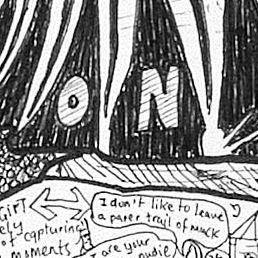 ON
GIFT
ely
of capturing
moments
I don't like to leave
a paper trail of muck
I are your
nudie